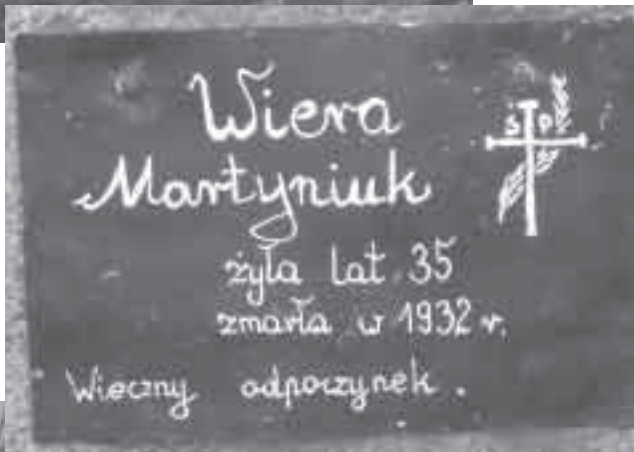 Ś P
Wiera
Martyniuk
żyła lat 35
zmarła w 1932 r.
Wieczny odpoczynek.